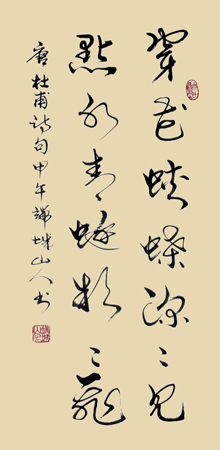 穿花蛺蝶深〻見
點水蜻蜓款〻飛
唐杜甫詩句甲午山人書